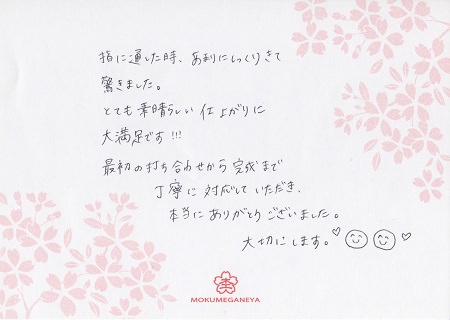 指に通した時、あまりにしっくりきて
驚きました。
とても素晴らしい仕上がりに
大満足です!!!
最初の打ち合わせから完成まで
丁寧に対応していただき、
本当にありがとうございました。
大切にします。
MOKUMEGANEYA